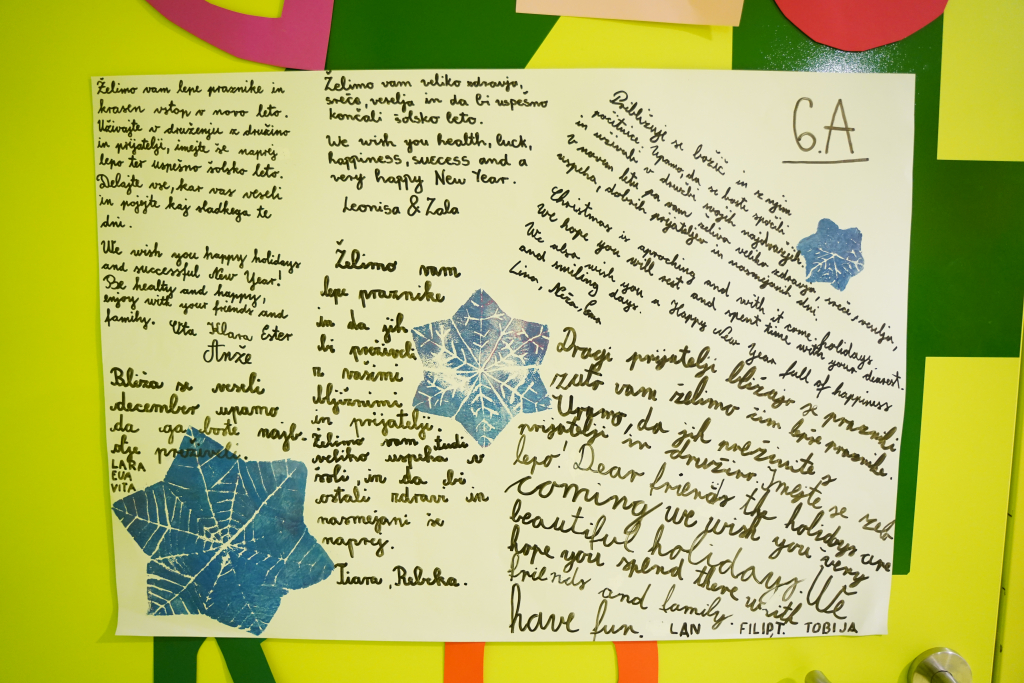 Želimo vam lepe praznike in
krasen vstop v novo leto.
Uživajte v druženju z družino
in prijatelji, imejte še naprej
lepo ter uspešno šolsko leto.
Delajte vse, kar vas veseli
in pojejte kaj sladkega te
dni.
We wish you happy holidays
and successful New Year!
Be healty and happy,
enjoy with your friends and
family.
Uta Klara Ester
Anže
Bliža se veseli
december upamo
da ga boste najb-
olje preživeli.
LARA
EVA
VITA
Želimo vam veliko zdravja,
sreče, veselja in da bi uspešno
končali šolsko leto.
We wish you health, luck,
happiness, success and a
very happy New Year.
Leonisa & Zala
Želimo vam
lepe praznike
in da jih
bi preživeli
z vašimi
bližnimi
in prijatelji.
Želimo vam tudi
veliko uspeha v
šoli, in da bi
ostali zdravi in
nasmejani še
naprej.
Tiara, Rebeka.
6.A
Približuje se božič in z njim
počitnice. Upamo, da se boste spočili
in uživali v družbi svojih najdražjih.
V novem letu pa vam želiva veliko zdravja, sreče, veselja,
uspeha, dobrih prijateljev in nasmejanih dni.
Christmas is aproching and with it come holidays.
We hope you will rest and spent time with your dearest.
We also wish you a Happy New Year full of happiness
and smiling days.
Lina, Neža,
Dragi prijatelji bližajo se prazniki
zato vam želimo čim lepše praznike.
Upamo, da jih preživite s
prijatelji in družino. Imejte se zelo
lepo! Dear friends the holidays are
coming we wish you very
beautiful holidays. We
hope you spend there with
friends and family.
have fun.
LAN FILIP,T. TOBIJA